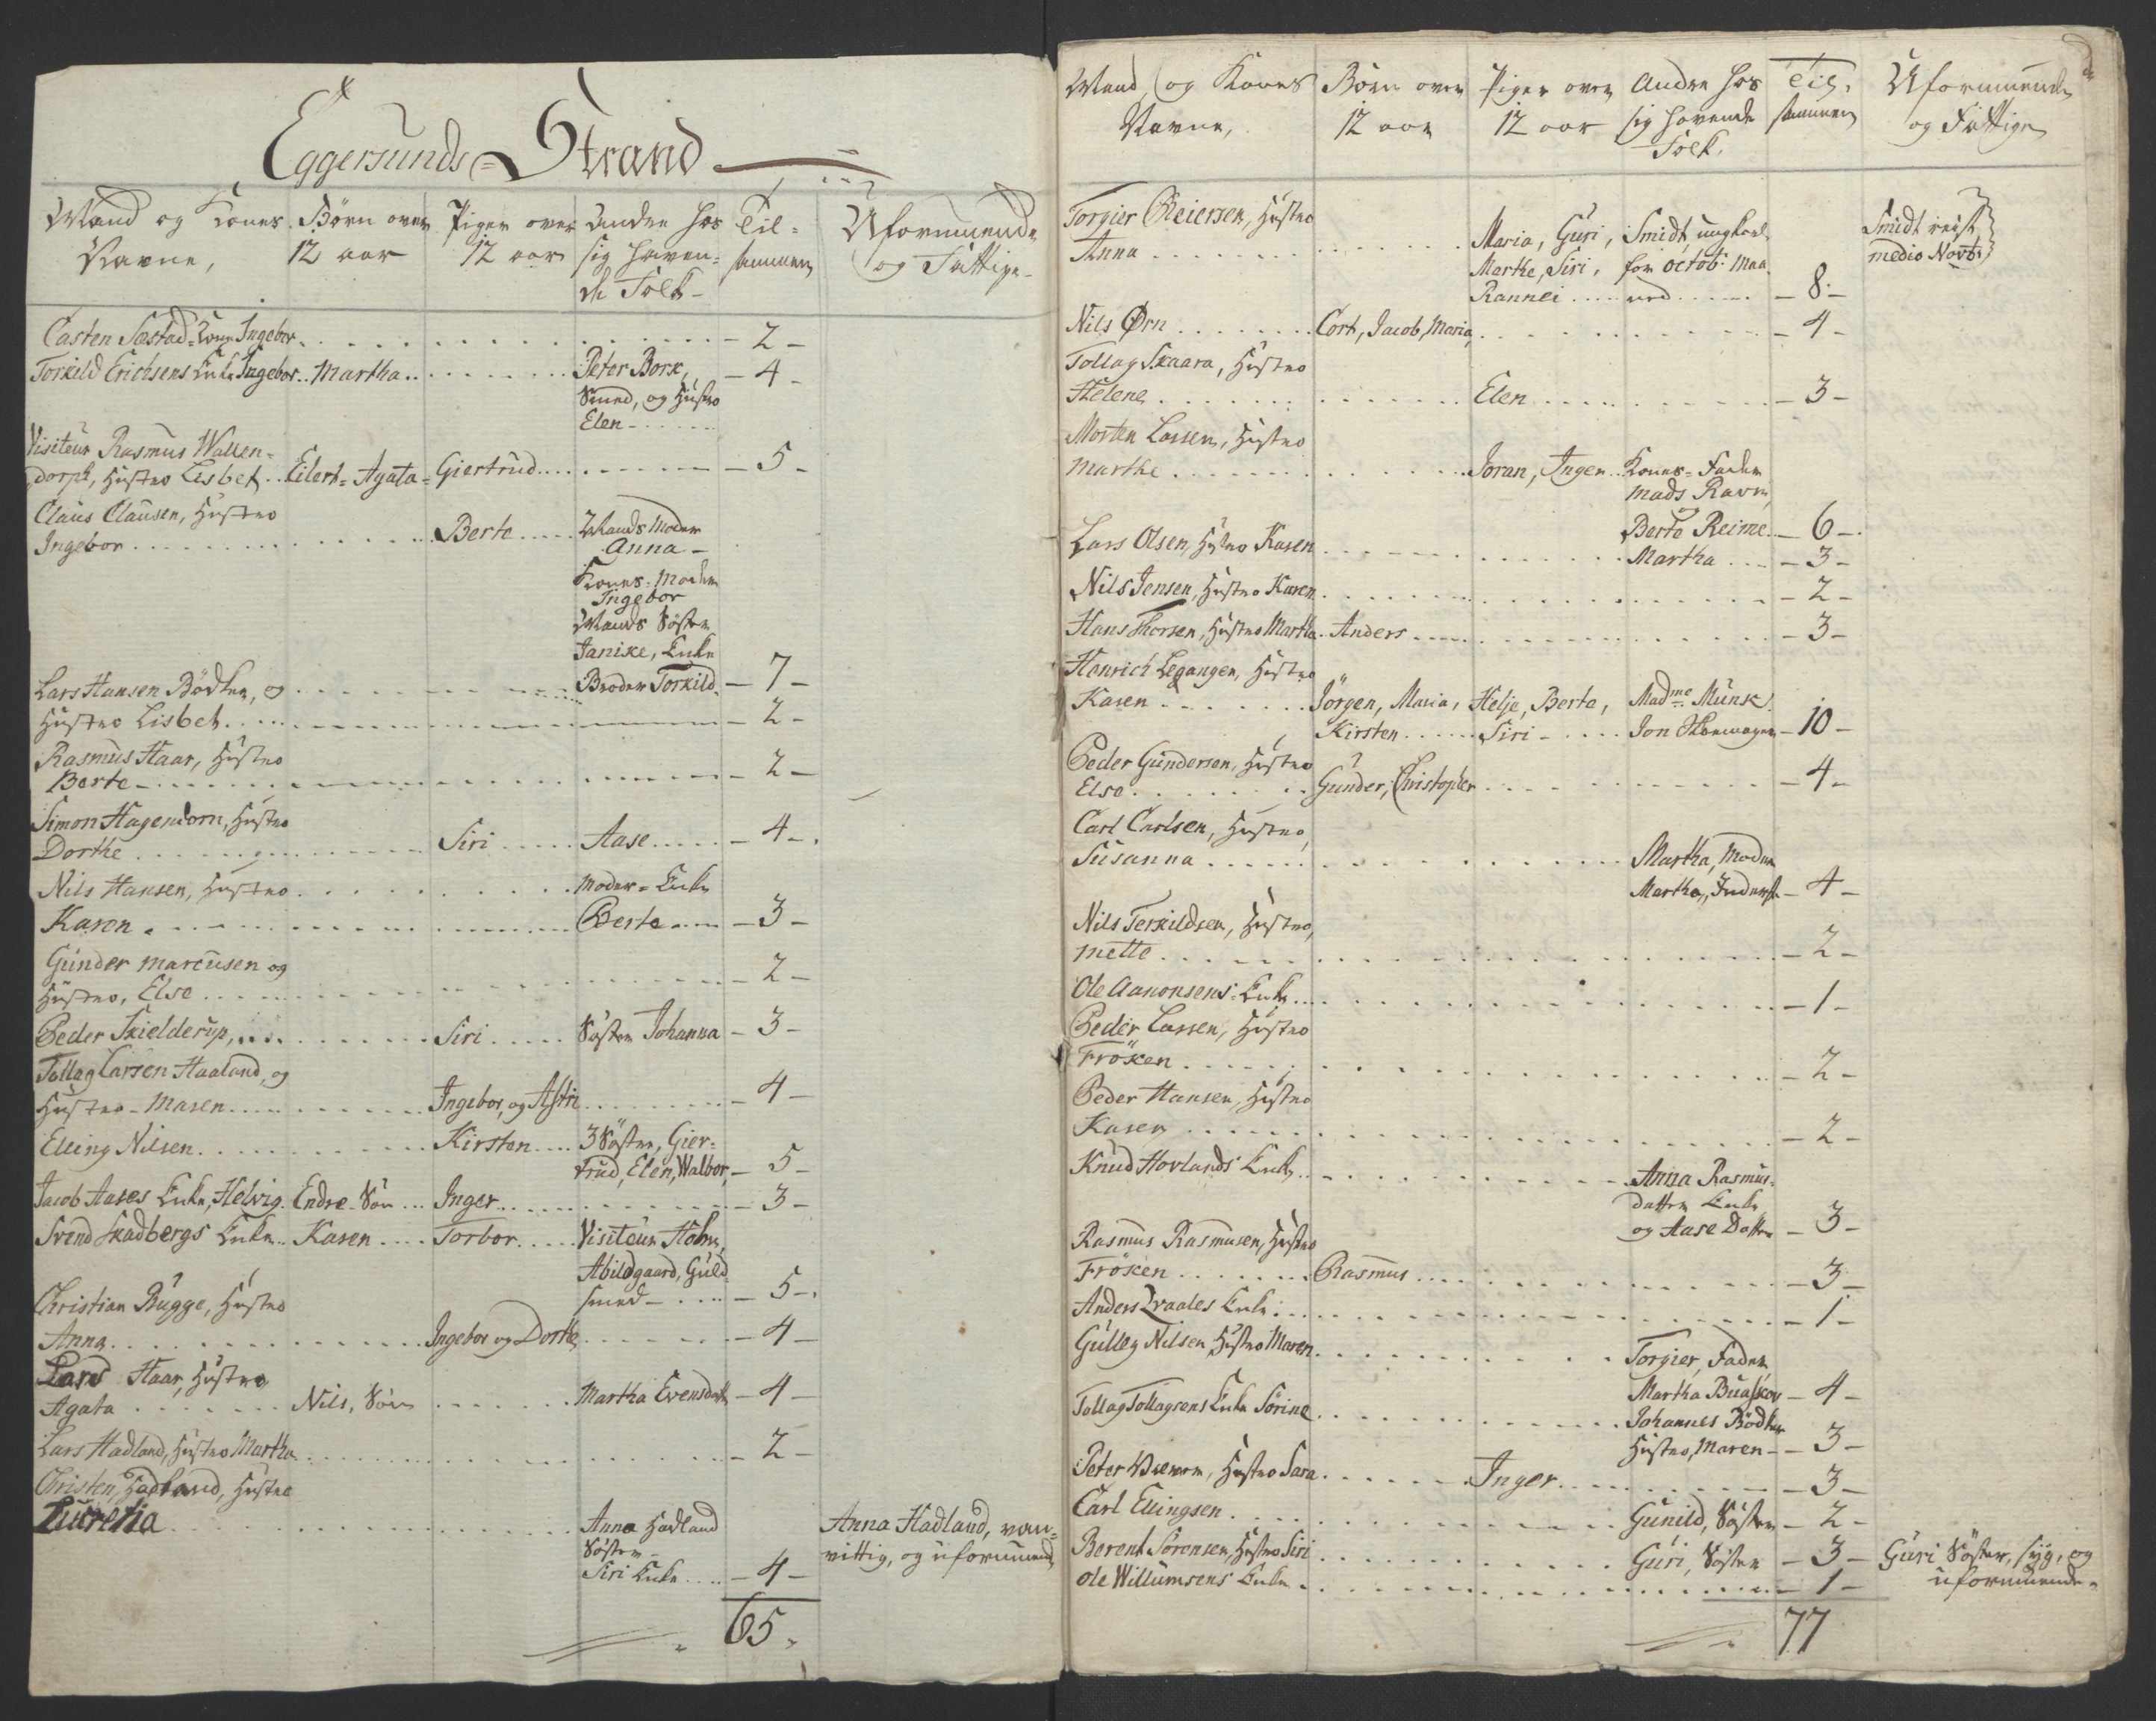 Eggersunds-Strand
Mand og Kones Børn over Piger over Andre hos Til- Uformuende
Navne, 12 aar 12 aar sig haven- sammen og Fattige
de Folk
Casten Sæstad Kone Ingebor - 2 -
Torkild Erichsens Enke Ingebor Martha Peter Bork, - 4 -
Smed, og Hustro
Elen
Visiteur Rasmus Wallen-
dorph, Hustro Lisbet Eilert - Agata - Giertrud - 5 -
Claus Clausen, Hustro
Ingebor Berte Mands Moder
Anna -
Kones Moder
Ingebor
Mands Söster
Janike, Enke
Broder Torkild - 7 -
Lars Hansen Bödker, og
Hustro Lisbet - 2 -
Rasmus Haar, Hustro
Berte - 2 -
Simon Hagendorn, Hustro
Dorthe Siri Aase - 4 -
Nils Hansen, Hustro Moder - Enke
Karen Berte - 3 -
Gunder Marcusen og
Hustro, Else - 2 -
Peder Skielderup, Siri Söster Johanna - 3 -
Tollag Larsen Haaland, og
Hustro - Maren Ingebor, og Astri - 4 -
Elling Nilsen Kirsten 3 Söstre, Gier-
trud, Elen, Walbor, - 5 -
Jacob Aases Enke, Helvig Endre - Sön Inger - 3 -
Svend Skadbergs Enke Karen Torbor Visiteur Holm,
Abildgaard, Guld-
smed - 5 -
Christian Bugge, Hustro
Anna Ingebor og Dorthe - 4 -
Lars Haar, Hustro
Agata Nils, Sön Martha Evensdatter - 4 -
Lars Hadland, Hustro Martha - 2 -
Christen Hadland, Hustro
Lucretia Anna Hadland Anna Hadland, van-
Söster vittig, og uformuende
Siri Enke - 4 -
65
Mand og Kones Børn over Piger over Andre hos Til- Uformuende
Navne, 12 aar 12 aar sig havende sammen og Fattige
Folk
Torgier Reiersen, Hustro
Anna Maria, Guri, Smidt, ungkarl Smidt reist
Marthe, Siri, for Octob: Maa- medio Novb:
Rannei ned - 8 -
Nils Ørn Cort, Jacob, Maria - 4 -
Tollag Skaara, Hustro
Helene Elen - 3 -
Morten Lassen, Hustro
Marthe Joran, Inger Kones - Fader
Mads Ravn,
og
Berte Reime - 6 -
Lars Olsen, Hustro Karen Martha - 3 -
Nils Jensen, Hustro Karen - 2 -
Hans Thorsen, Hustro Martha Anders - 3 -
Henrich Legangen, Hustro
Karen Jörgen, Maria, Helje, Berta, Madme Munk
Kirsten Siri Jon - 10 -
Peder Gundersen, Hustro
Else Gunder, Christopher - 4 -
Carl Carlsen, Hustro
Susanna Martha, Moder
Marthe, Inderst - 4 -
Nils Terkildsen, Hustro,
Mette - 2 -
Ole Aanonsens Enke - 1 -
Peder Lassen, Hustro
Fröken - 2 -
Peder Hansen, Hustro
Karen - 2 -
Knud Hovlands Enke Anna Rasmus-
datter Enke
og Aase Datter - 3 -
Rasmus Rasmusen, Hustro
Fröken Rasmus - 3 -
Anders Qvaales Enke - 1 -
Gulleg Nilsen Hustro Maren Torgier, Fader
Martha - 4 -
Tollag Tollagsens Enke Sörine Johannes Bödker
Hustro, Maren - 3 -
Peter Hustro Sara Inger - 3 -
Carl Ellingsen Gunild, Söster - 2 -
Berent Sörensen, Hustro Siri Guri, Söster - 3 - Guri Söster, syg, og
Ole Willumsens Enke - 1 - uformuende
77